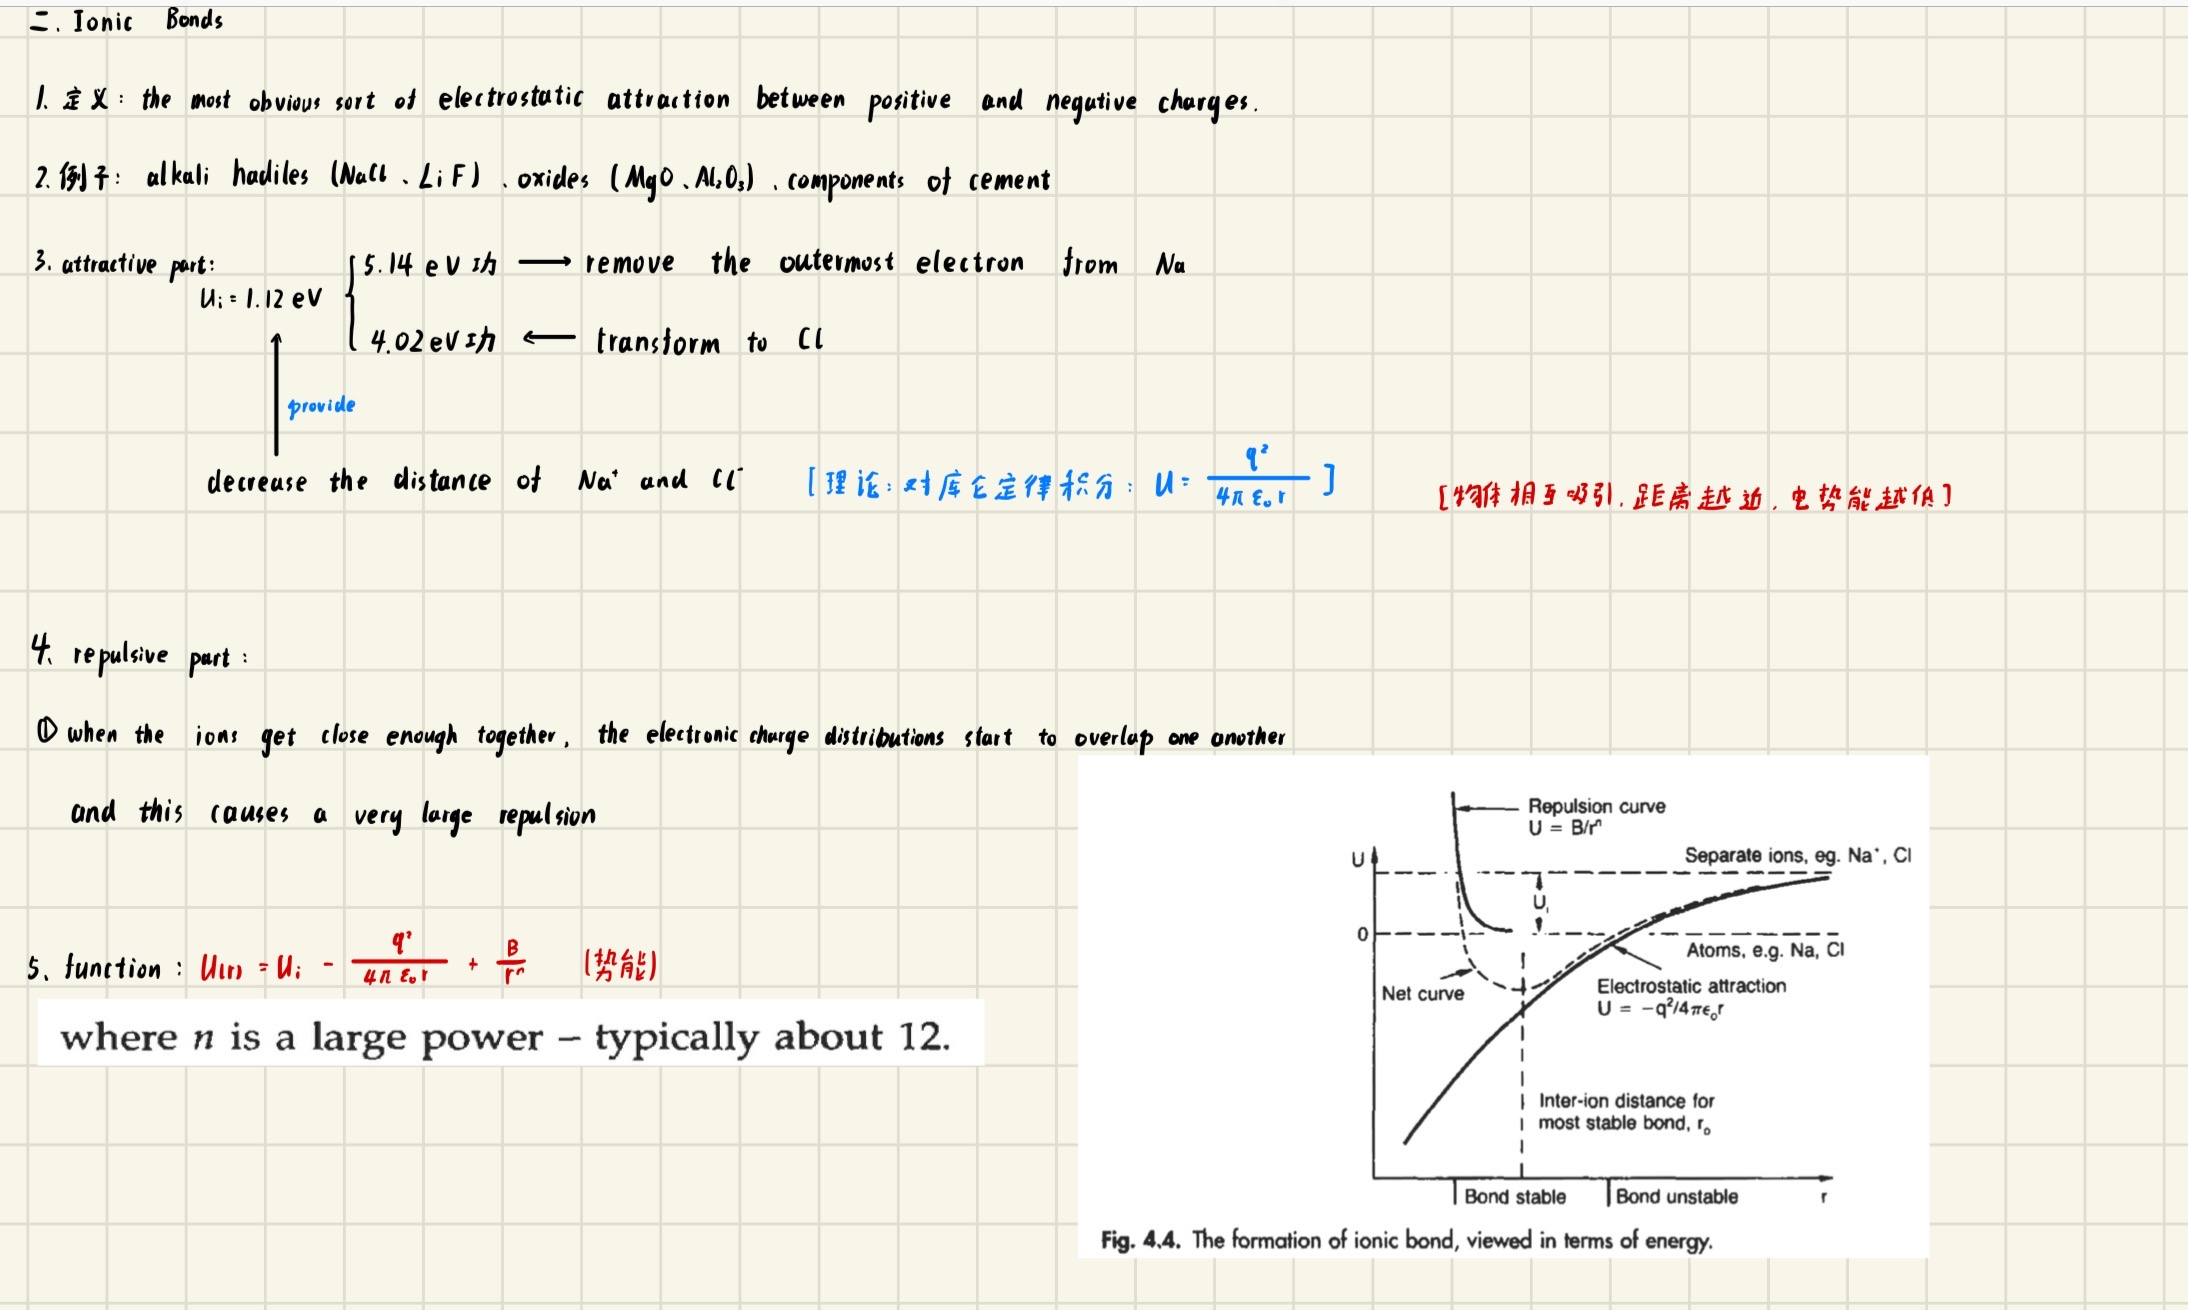 二. Ionic Bonds
1. 定义: the most obvious sort of electrostatic attraction between positive and negative charges.
2. 例子: alkali hadiles (NaCl、LiF)、oxides (MgO、Al₂O₃)、components of cement
3. attractive part:
Ui = 1.12 eV
5.14 eV 功 ⟶ remove the outermost electron from Na
4.02 eV 功 ⟵ transform to Cl
provide
decrease the distance of Na⁺ and Cl⁻ [理论: 对库仑定律积分: U = q²/4πε₀r] [物体相互吸引, 距离越近, 电势能越低]
4. repulsive part:
① when the ions get close enough together, the electronic charge distributions start to overlap one another
and this causes a very large repulsion
5. function: U(r) = Ui - q²/4πε₀r + B/rⁿ (势能)
where n is a large power – typically about 12.
Repulsion curve
U = B/rⁿ
U
Separate ions, eg. Na⁺, Cl
Uᵢ
0
Atoms, e.g. Na, Cl
Net curve
Electrostatic attraction
U = −q²/4πϵ₀r
Inter-ion distance for
most stable bond, r₀
Bond stable
Bond unstable
r
Fig. 4.4. The formation of ionic bond, viewed in terms of energy.